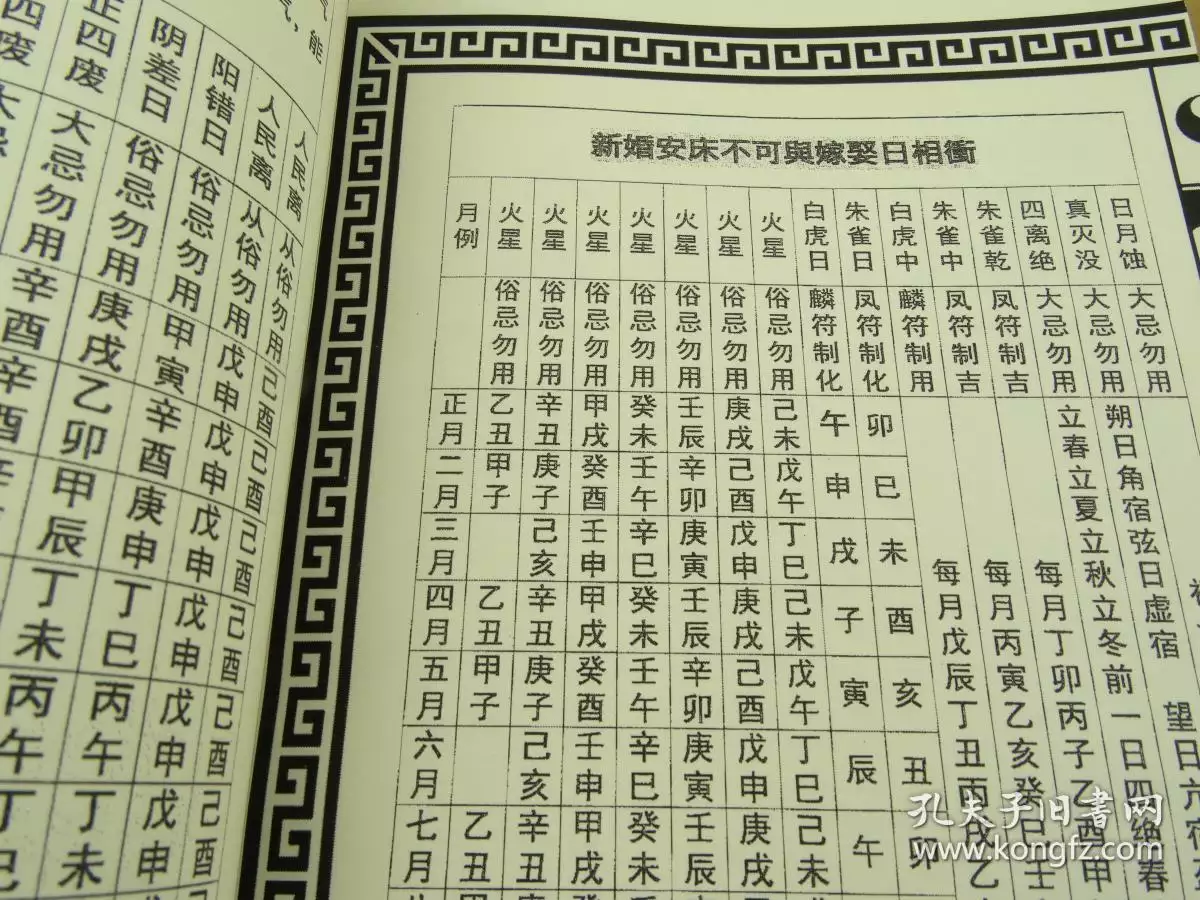 气
气，能
正四废 阴差日 阳错日 人民离 人民离
大忌勿用 俗忌勿用 俗忌勿用 从俗勿用 从俗勿用
辛酉 庚戌 甲寅 戊申 己酉
辛酉 乙卯 辛酉 戊申 己酉
甲辰 庚申 戊申 己酉
丁未 丁巳 戊申 己酉
丙午 丙午 戊申 己酉
丁巳 丁未 戊申 己酉
新婚安床不可與嫁娶日相衝
月例 火星 火星 火星 火星 火星 火星 火星 白虎日 朱雀日 白虎中 朱雀中 朱雀乾 四离绝 真灭没 日月蚀
俗忌勿用 俗忌勿用 俗忌勿用 俗忌勿用 俗忌勿用 俗忌勿用 俗忌勿用 麟符制化 凤符制化 麟符制用 凤符制吉 凤符制吉 大忌勿用 大忌勿用 大忌勿用
正月 乙丑 辛丑 甲戌 癸未 壬辰 庚戌 己未 午 卯
二月 甲子 庚子 癸酉 壬午 辛卯 己酉 戊午 申 巳
三月 己亥 壬申 辛巳 庚寅 戊申 丁巳 戌 未
四月 乙丑 辛丑 甲戌 癸未 壬辰 庚戌 己未 子 酉
五月 甲子 庚子 癸酉 壬午 辛卯 己酉 戊午 寅 亥
六月 己亥 壬申 辛巳 庚寅 戊申 丁巳 辰 丑
七月 乙丑 辛丑 甲戌 癸未 壬辰 庚戌 己未 午 卯
每月戊辰丁丑丙戌乙
每月丙寅乙亥癸巳壬
每月丁卯丙子乙酉甲
立春立夏立秋立冬前一日四绝春
朔日角宿弦日虚宿 望日亢宿
孔夫子旧書网
www.kongfz.com